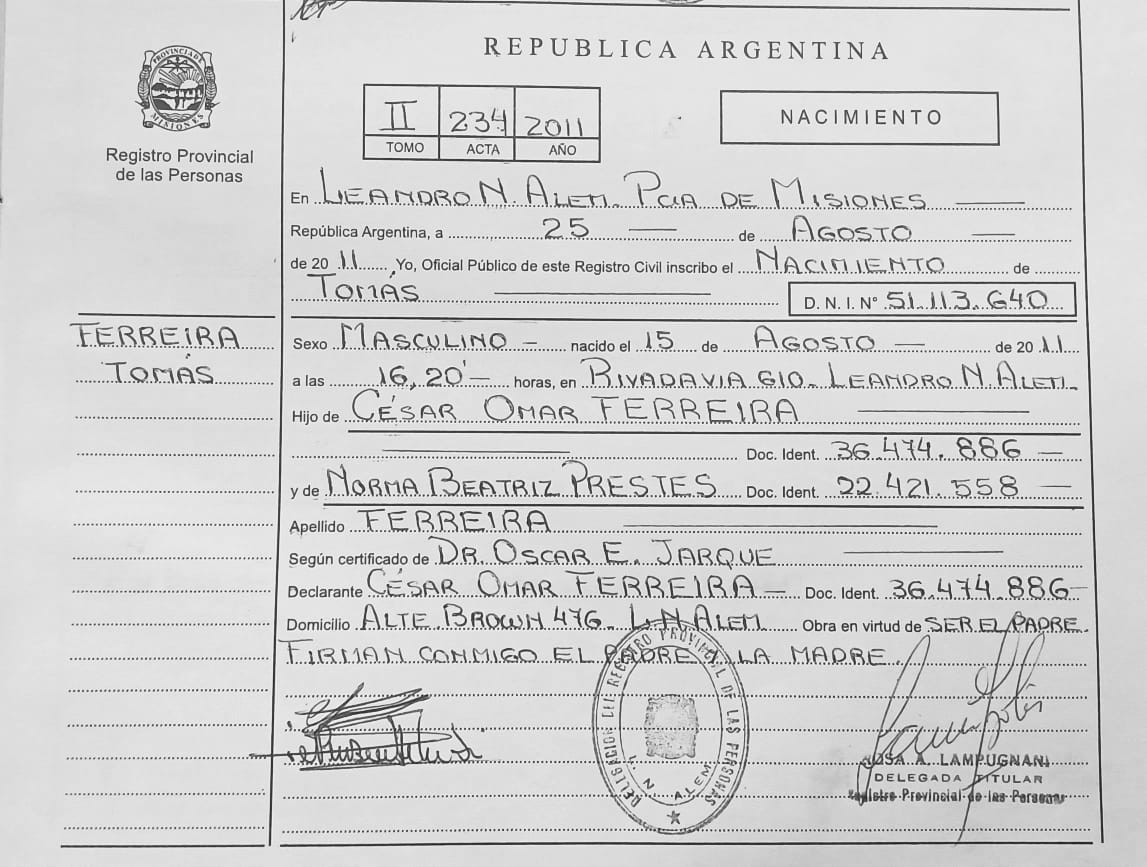 PROVINCIA DE MISIONES
Registro Provincial
de las Personas
REPUBLICA ARGENTINA
II 234 2011
TOMO ACTA AÑO
NACIMIENTO
En LEANDRO N. ALEM. PCIA DE MISIONES
República Argentina, a 25 de AGOSTO
de 20 11 Yo, Oficial Público de este Registro Civil inscribo el NACIMIENTO de
TOMÁS
D. N. I. Nº 51.113.640
FERREIRA
TOMÁS
Sexo MASCULINO - nacido el 15 de AGOSTO de 20 11
a las 16,20' horas, en RIVADAVIA 610. LEANDRO N. ALEM.
Hijo de CÉSAR OMAR FERREIRA
Doc. Ident. 36.474.886
y de NORMA BEATRIZ PRESTES Doc. Ident. 22.421.558
Apellido FERREIRA
Según certificado de DR. OSCAR E. JARQUE
Declarante CÉSAR OMAR FERREIRA Doc. Ident. 36.474.886
Domicilio ALTE BROWN 476. L.N. ALEM Obra en virtud de SER EL PADRE.
FIRMAN CONMIGO EL PADRE Y LA MADRE.
DELEGACION DEL REGISTRO PROVINCIAL DE LAS PERSONAS
L. N. ALEM
A. LAMPUGNANI
DELEGADA TITULAR
Registro Provincial de las Personas